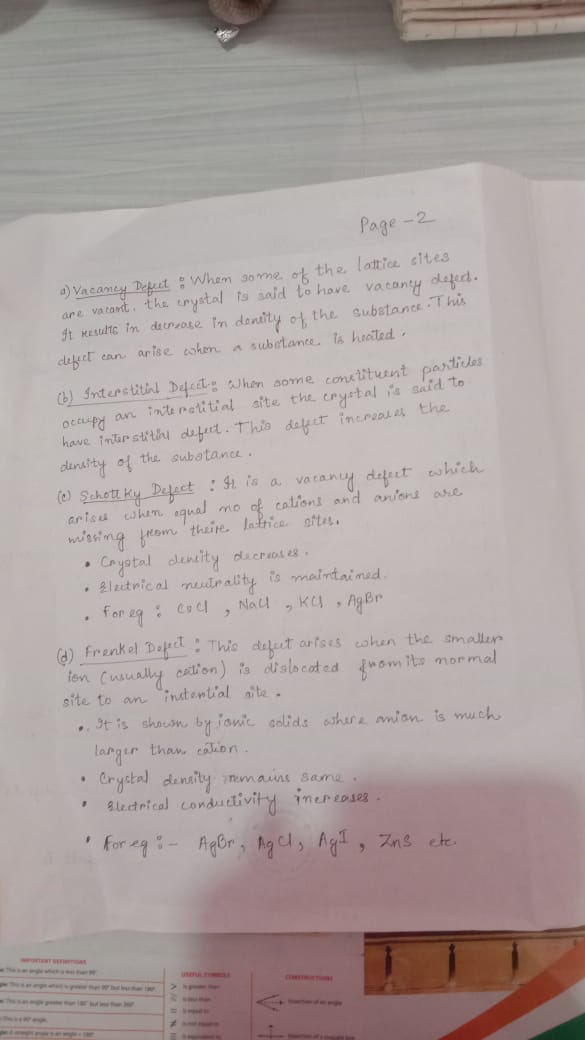 Page - 2
a) Vacancy Defect : When some of the lattice sites
are vacant, the crystal is said to have vacancy defect.
It results in decrease in density of the substance. This
defect can arise when a substance is heated.
(b) Interstitial Defect : When some constituent particles
occupy an interstitial site the crystal is said to
have interstitial defect. This defect increases the
density of the substance.
(c) Schottky Defect : It is a vacancy defect which
arises when equal no of cations and anions are
missing from theire lattice sites.
• Crystal density decreases.
• Electrical neutrality is maintained.
• For eg : CsCl, NaCl, KCl, AgBr
(d) Frenkel Defect : This defect arises when the smaller
ion (usually cation) is dislocated from its normal
site to an instential site.
• It is shown by ionic solids where anion is much
larger than cation.
• Crystal density remains same.
• Electrical conductivity increases.
• For eg :- AgBr, AgCl, AgI, ZnS etc.
IMPORTANT DEFINITIONS
This is an angle which is less than 90°
This is an angle which is greater than 90° but less than 180°
This is an angle greater than 180° but less than 360°
This is a 90° angle.
A straight angle is an angle = 180°
USEFUL SYMBOLS
> is greater than
is less than
= is equal to
≠ is not equal to
is equivalent to
CONSTRUCTIONS
Bisection of an angle
Bisection of a straight line